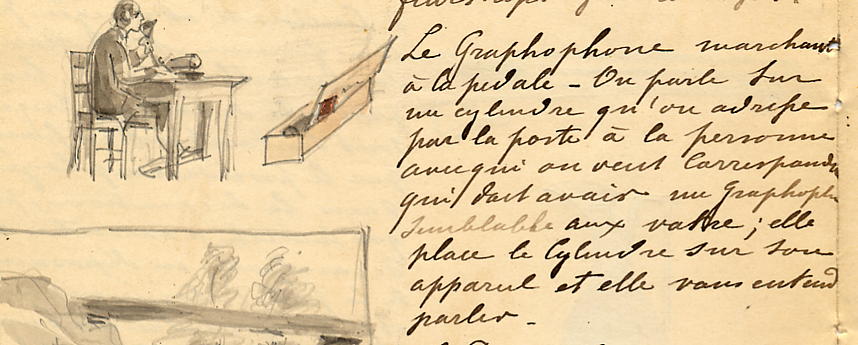 Le Graphophone marchant
à la pédale - On parle sur
un cylindre qu'on adresse
par la poste à la personne
avec qui on veut Correspondre
qui doit avoir un Graphoph
semblable aux votre ; elle
place le Cylindre sur son
appareil et elle vous entend
parler -